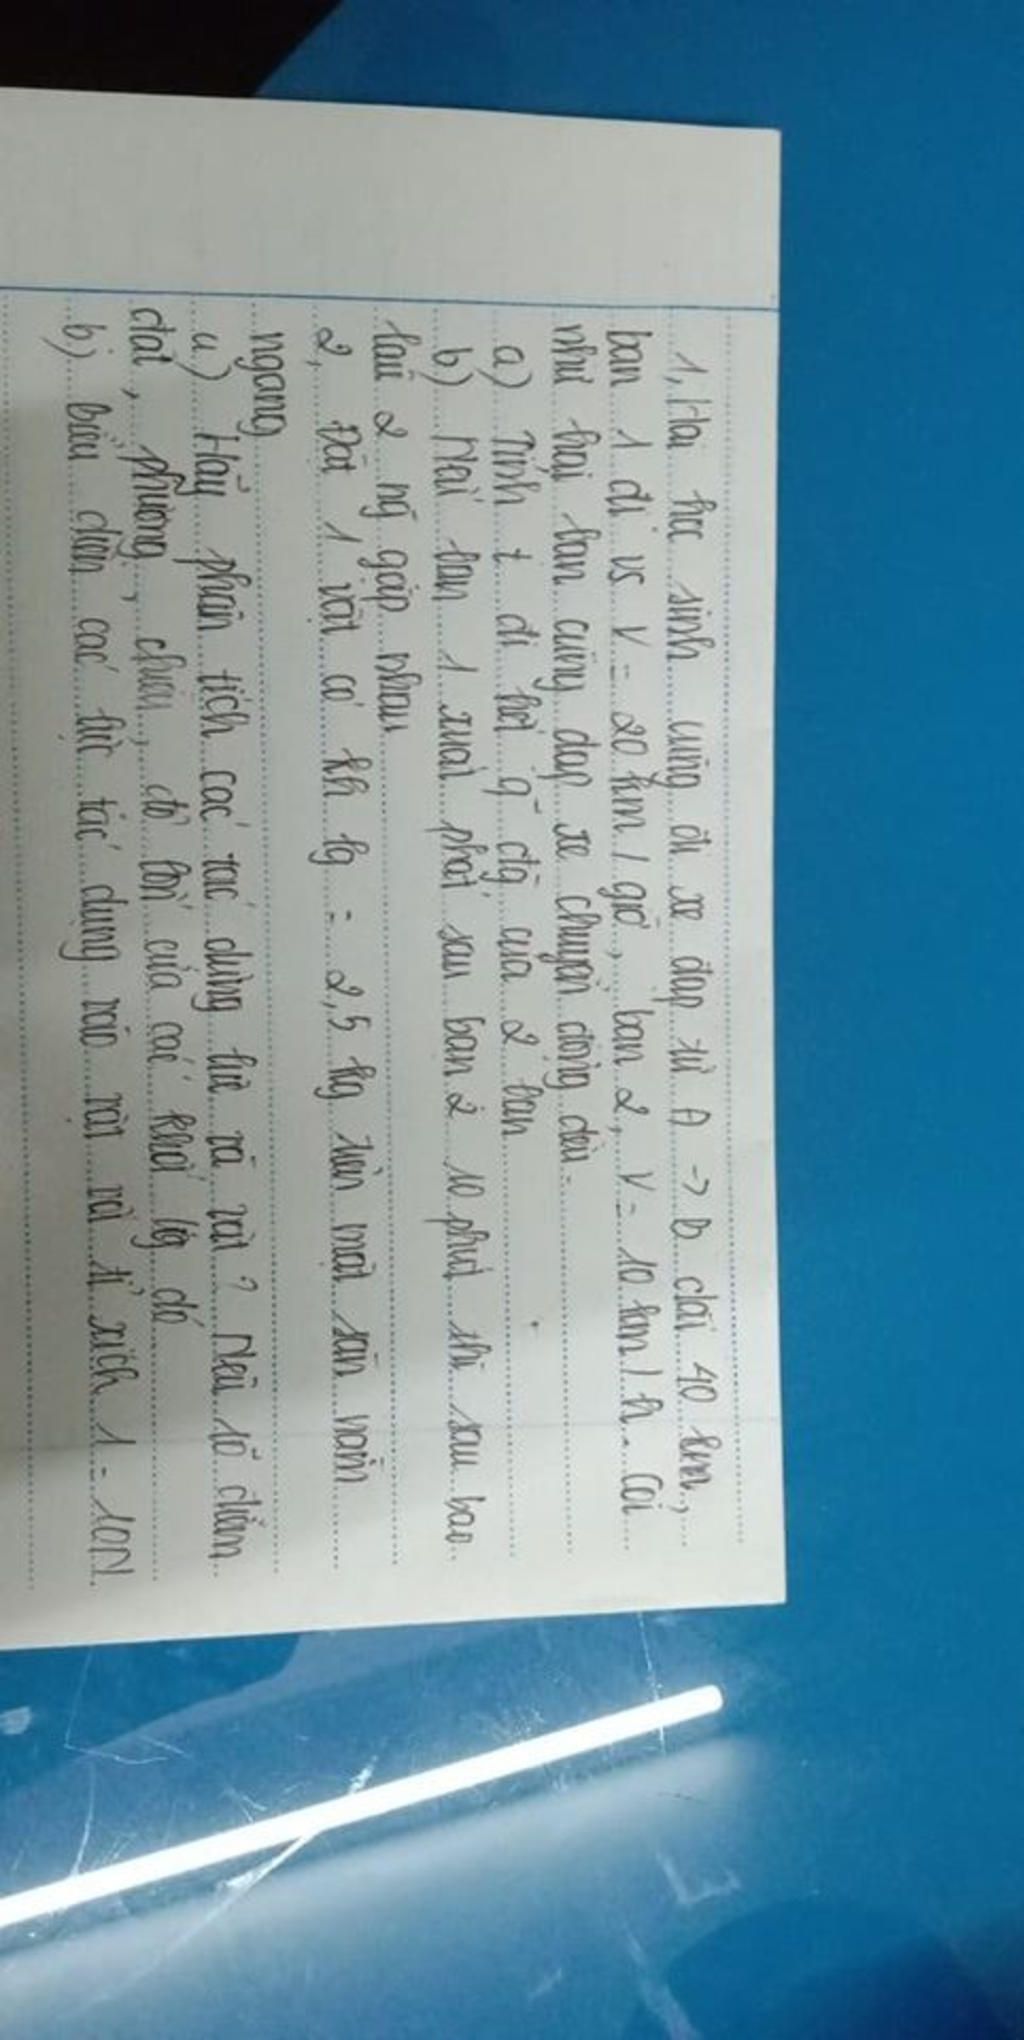 1, Hai học sinh cùng đi xe đạp từ A -> B dài 40 km,
bạn 1 đi vs V = 20 km / giờ, bạn 2, V = 10 km / h. Coi
như hai bạn cùng đạp xe chuyển động đều.
a) Tính t đi hết q~ đg của 2 bạn
b) Nếu bạn 1 xuất phát sau bạn 2 10 phút thì sau bao
lâu 2 ng gặp nhau
2, Đặt 1 vật có kh lg = 2,5 kg trên mặt sàn nằm
ngang
a) Hãy phân tích các tác dụng lực và vật? Nêu rõ điểm
đặt, phương, chiều, độ lớn của các khối lg đó
b) biểu diễn các lực tác dụng vào vật với tỉ xích 1 = 10N